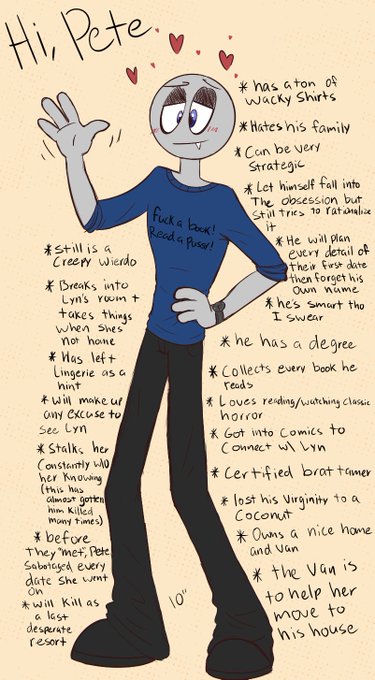 Hi, Pete
* has a ton of
wacky shirts
* Hates his family
* Can be very
strategic
* Let himself fall into
The obsession but
still tries to rationalize
it
* He will plan
every detail of
their first date
then forget his
own name
* he's smart tho
I swear
* he has a degree
* Collects every book he
reads
* Loves reading/watching classic
horror
* Got into Comics to
Connect w/ Lyn
* Certified brat tamer
* lost his Virginity to a
Coconut
* Owns a nice home
and Van
* the Van is
to help her
move to
his house
Fuck a book!
Read a pussy!
* Still is a
Creepy Wierdo
* Breaks into
Lyn's room +
takes things
when shes
not home
* Has left
Lingerie as a
hint
* will make up
any excuse to
see Lyn
* Stalks her
Constantly w/o
her knowing
(this has
almost gotten
him killed
many times)
* before
They "met", Pete
Sabotaged every
date she went
on
* will Kill as
a last
desperate
resort
10"